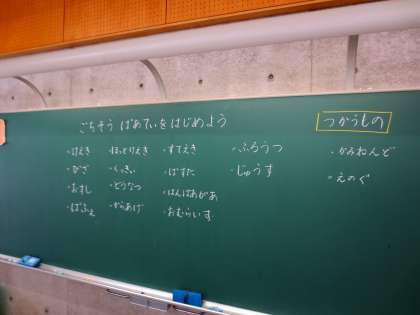 ごちそう ぱあてぃをはじめよう
つかうもの
・けえき
・ぴざ
・おすし
・ぱふぇ
・ほっとけえき
・くっきい
・どうなつ
・からあげ
・すてえき
・ぱすた
・はんばあがあ
・おむらいす
・ふろうつ
・じゅうす
・かみねんど
・えのぐ